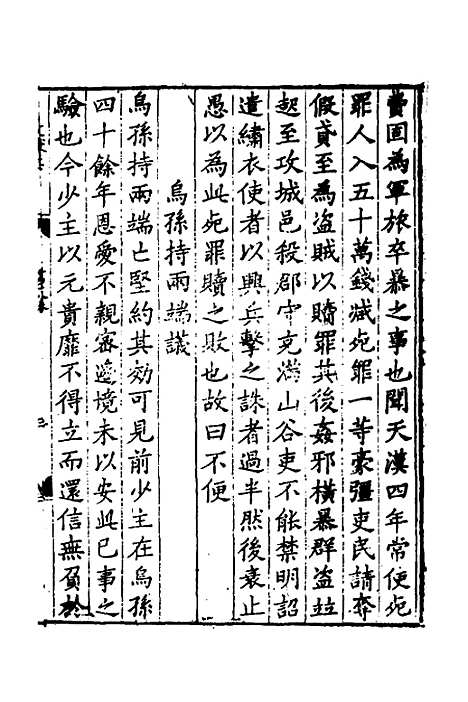 費固為軍旅卒暴之事也聞天漢四年常使死
罪人入五十萬錢減死罪一等豪彊吏民請奪
假貣至為盜賊以贖罪其後姦邪橫暴群盜並
起至攻城邑殺郡守充滿山谷吏不能禁明詔
遣繡衣使者以興兵擊之誅者過半然後衰止
愚以為此死罪贖之敗也故曰不便
烏孫持兩端議
烏孫持兩端亡堅約其効可見前少主在烏孫
四十餘年恩愛不親密邊境未以安此已事之
驗也今少主以元貴靡不得立而還信無負於